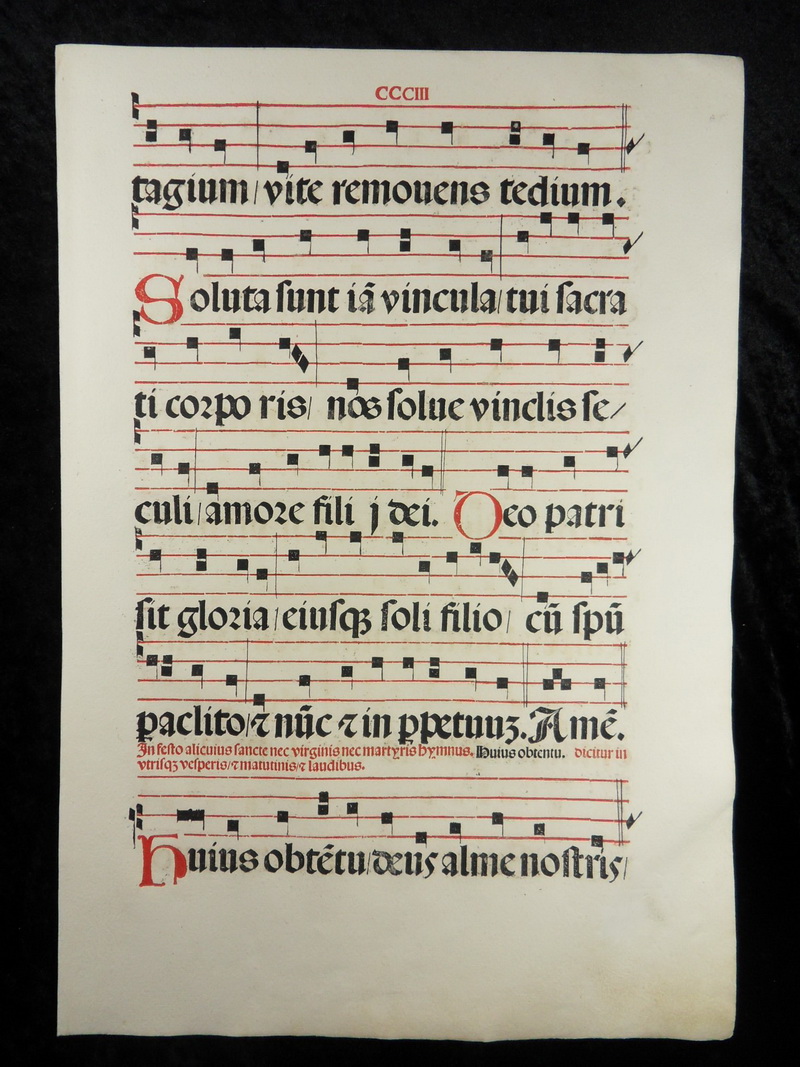 CCCIII
tagium/ vite remouens tedium.
Soluta sunt iã vincula/ tui sacra
ti corpo ris/ nos solue vinclis se/
culi/ amore fili j dei. Deo patri
sit gloria/ eiusqꝫ soli filio/ cũ spũ
paclito/ ⁊ nũc ⁊ in ꝑpetuuꝫ. Amẽ.
In festo alicuius sancte nec virginis nec martyris hymnus. Huius obtentu. dicitur in
vtrisqꝫ vesperis/ ⁊ matutinis/ ⁊ laudibus.
Huius obtẽtu/ deus alme nostris/